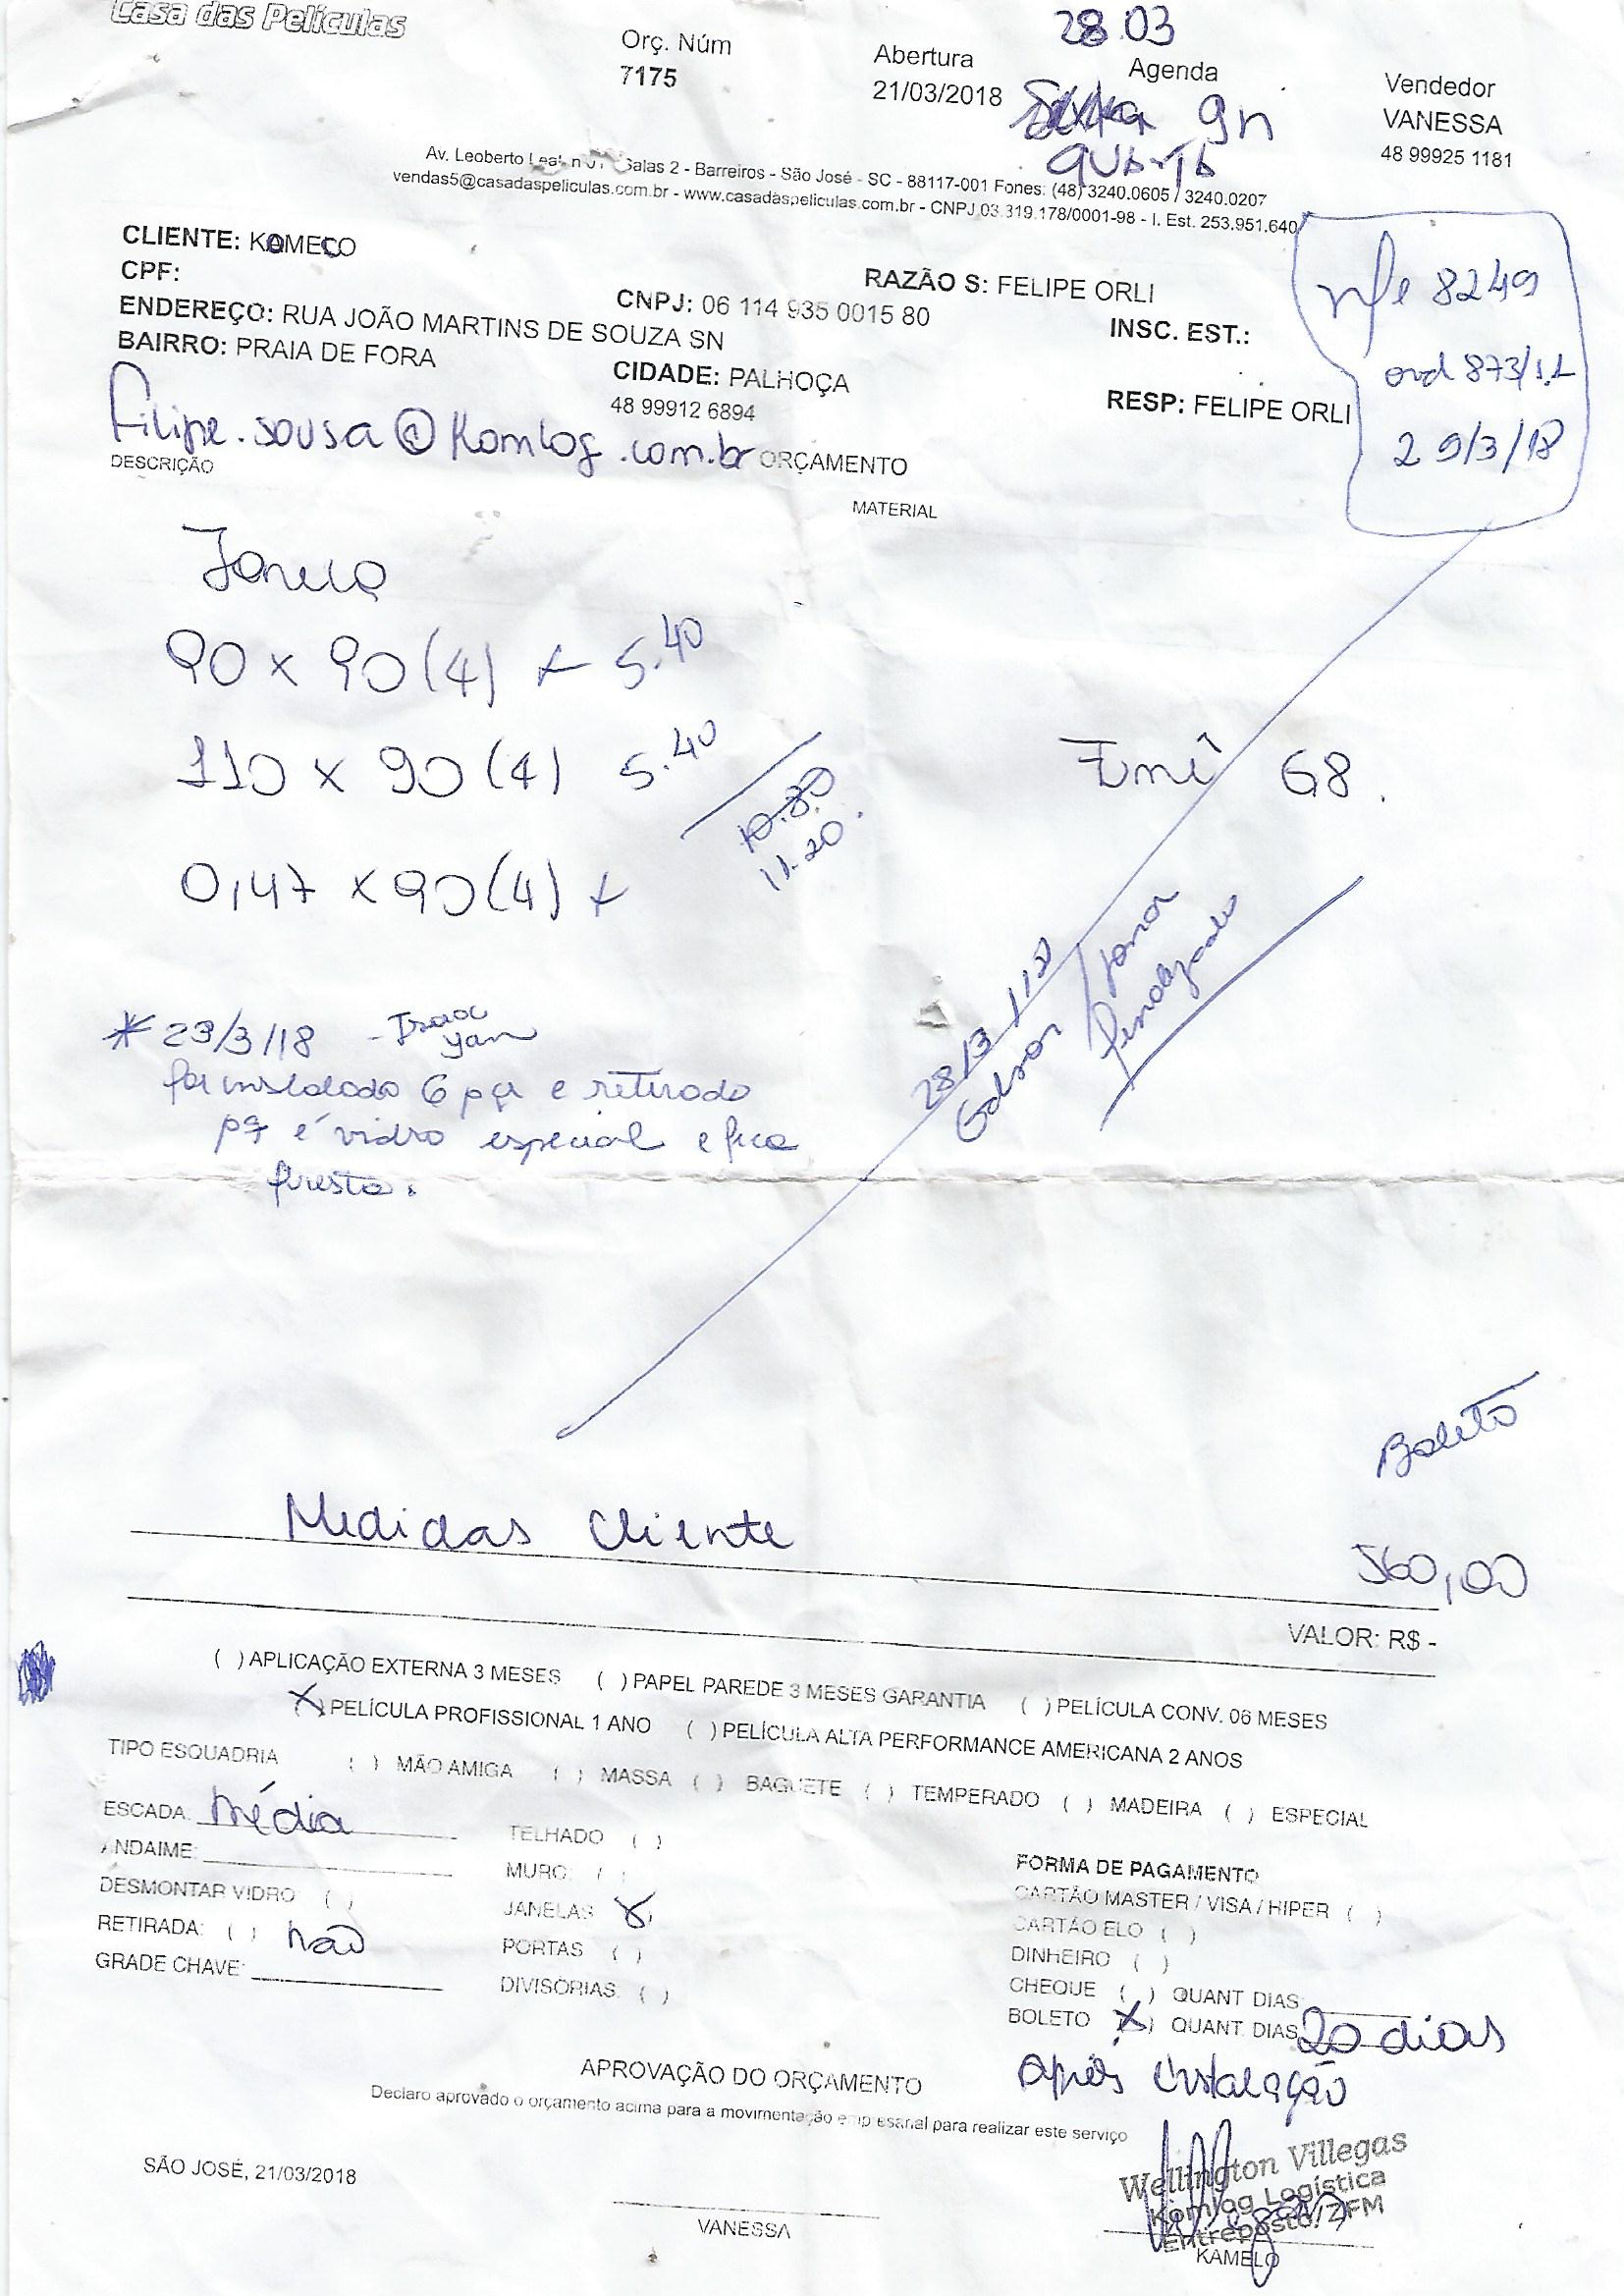 Casa das Películas
28.03
Orç. Núm
7175
Abertura
21/03/2018
Agenda
9h
Vendedor
VANESSA
48 99925 1181
Av. Leoberto Leal, n Salas 2 - Barreiros - São José - SC - 88117-001 Fones: (48) 3240.0605 / 3240.0207
vendas5@casadaspeliculas.com.br - www.casadaspeliculas.com.br - CNPJ 03.319.178/0001-98 - I. Est. 253.951.640
CLIENTE: KOMECO
RAZÃO S: FELIPE ORLI
CPF:
CNPJ: 06 114 935 0015 80
INSC. EST.:
ENDEREÇO: RUA JOÃO MARTINS DE SOUZA SN
BAIRRO: PRAIA DE FORA
CIDADE: PALHOÇA
48 99912 6894
RESP: FELIPE ORLI
nfe 8249
ord 873/1.1
29/3/18
Filipe.sousa@Komlog.com.br
ORÇAMENTO
DESCRIÇÃO
MATERIAL
Janela
90 x 90 (4) + 5.40
110 x 90 (4) 5.40
10.80
11.20
0,47 x 90 (4) +
G8.
28/3/18
finalizado
* 23/3/18 - Isaac
Yan
foi instalado 6 pça e retirado
pq é vidro especial e fica
fresta.
Boleto
Medidas Cliente
560,00
VALOR: R$ -
( ) APLICAÇÃO EXTERNA 3 MESES ( ) PAPEL PAREDE 3 MESES GARANTIA ( ) PELÍCULA CONV. 06 MESES
(X) PELÍCULA PROFISSIONAL 1 ANO ( ) PELÍCULA ALTA PERFORMANCE AMERICANA 2 ANOS
TIPO ESQUADRIA ( ) MÃO AMIGA ( ) MASSA ( ) BAGUETE ( ) TEMPERADO ( ) MADEIRA ( ) ESPECIAL
ESCADA: Média
TELHADO ( )
ANDAIME:
MURO: ( )
DESMONTAR VIDRO ( )
JANELAS (X)
RETIRADA: ( ) Não
PORTAS ( )
GRADE CHAVE:
DIVISÓRIAS: ( )
FORMA DE PAGAMENTO
CARTÃO MASTER / VISA / HIPER ( )
CARTÃO ELO ( )
DINHEIRO ( )
CHEQUE ( ) QUANT DIAS
BOLETO (X) QUANT. DIAS 20 dias
Após Instalação
APROVAÇÃO DO ORÇAMENTO
Declaro aprovado o orçamento acima para a movimentação empresarial para realizar este serviço
SÃO JOSÉ, 21/03/2018
VANESSA
Wellington Villegas
Komlog Logística
Entreposto/ZFM
KAMELO